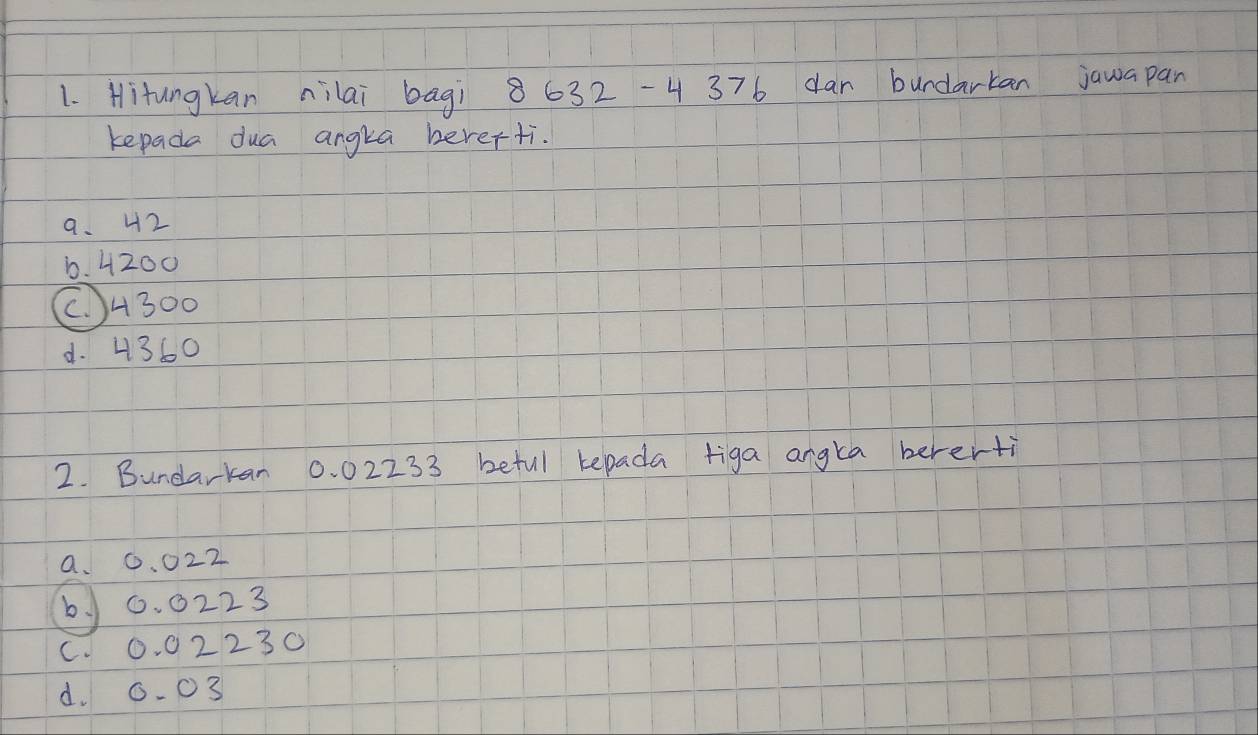 1. Hitungkan nilai bagi 8 632 - 4 376 dan bundarkan jawapan
kepada dua angka bererti.
a. 42
b. 4200
c. 4300
d. 4360
2. Bundarkan 0.02233 betul kepada tiga angka bererti
a. 0.022
b. 0.0223
c. 0.02230
d. 0.03